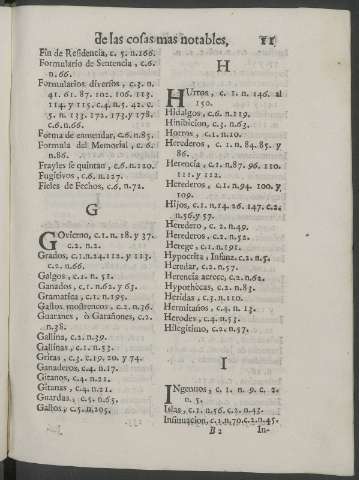 de las cosas mas notables,
Fin de Residencia, c. 5. n. 166.
Formulario de Sentencia, c.6.
n.66.
Formularios diversos, c.3. n.
41. 61. 87. 102. 106. 113.
114. y 115. c.4. n.5. 42. c.
5. n. 133. 172. 173. y 178.
c.6. n.66.
Forma de enmendar, c.6. n.85.
Formula del Memorial, c.6.
n.86.
Frayles se quintan, c.6. n.120.
Fugitivos, c.6. n.127.
Fieles de Fechos, c.6. n.72.
G
GOvierno, c.1. n.18. y 37.
c.2. n.2.
Grados, c.1. n.24. 112. y 113.
c.2. n.66.
Galgos, c.1. n. 51.
Ganados, c.1. n.62. y 63.
Gramatica, c.1. n.195.
Gastos mostrencos, c.2. n.36.
Guaranes, ò Garañones, c.2.
n.38.
Gallina, c.2. n.39.
Gallinas, c.1. n.53.
Gritas, c.3. c.19. 20. y 74.
Ganaderos, c.4. n.17.
Gitanos, c.4. n.21.
Gitanas, c.4. n.21.
Guardas, c.5. n.65.
Gastos, c.5. n.205.
H
HUrtos, c. 1. n. 146. al
150.
Hidalgos, c.6. n.119.
Hinibicion, c.3. n.63.
Hornos, c.1. n.10.
Herederos, c.1. n. 84. 85. y
86.
Herencia, c.1. n.87. 96. 110.
111. y 112.
Herederos, c.1. n.94. 100. y
109.
Hijos, c.1. n.14. 26. 147. c.2.
n.56. y 57.
Heredero, c.2. n.49.
Herederos, c.2. n.52.
Herege, c.1. n.191.
Hypocrita, Insanz. c.2. n.5.
Heredar, c.2. n.57.
Herencia acrece, c.2. n.62.
Hypothecas, c.2. n.83.
Heridas, c.3. n.110.
Hermitaños, c.4. n.13.
Herodes, c.4. n.53.
Hilegitimo, c.2. n.57.
I
INgenuos, c. 1. n. 9. c.2.
n. 5.
Islas, c.1. n.56. c.2. n.43.
Insinuacion, c.1. n.70. c.2. n.45.
B 2 In-